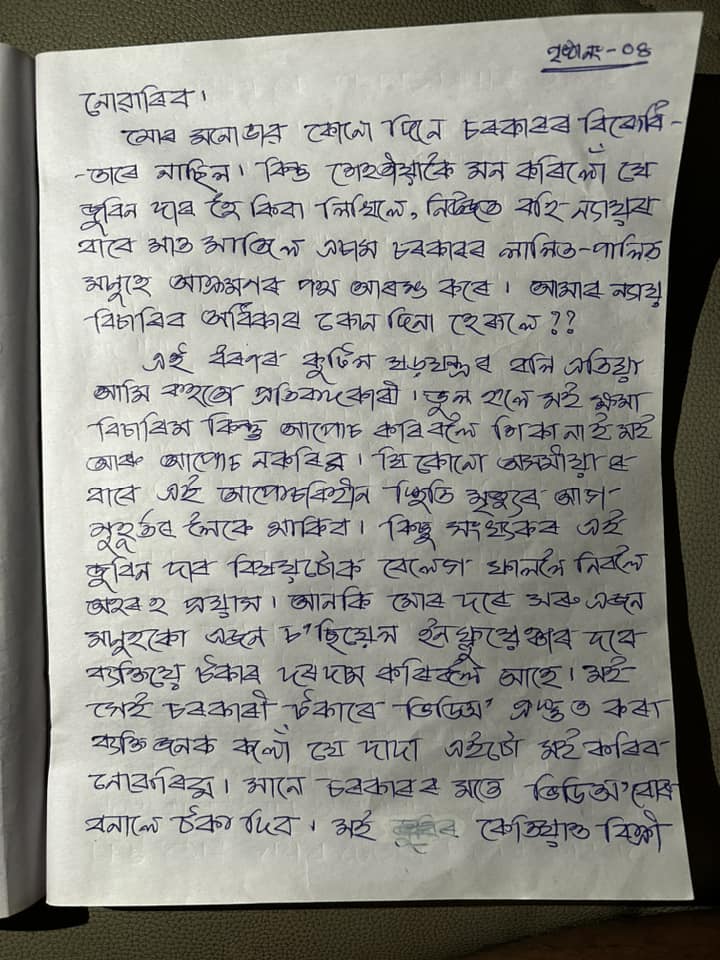 পৃষ্ঠা নং - ০৪
নোৱাৰিব।
মোৰ মনোভাৱ কোনো দিনে চৰকাৰৰ বিৰোধী-
-ভাবে নাছিল। কিন্তু শেহতীয়াকৈ মন কৰিলোঁ যে
জুবিন দাৰ হৈ কিবা লিখিলে, নিউজত বহি ন্যায়ৰ
বাবে মাত মাতিলে এচাম চৰকাৰৰ লালিত-পালিত
মানুহে আক্ৰমণৰ পথ আৰম্ভ কৰে। আমাৰ ন্যায়
বিচাৰিব অধিকাৰ কোন দিনা হেৰুলে??
এই ধৰণৰ কুটিল ষড়যন্ত্ৰৰ বলি এতিয়া
আমি বহুতো প্ৰতিবাদকাৰী। ভুল হলে মই ক্ষমা
বিচাৰিম কিন্তু আপোচ কৰিবলৈ শিকা নাই মই
আৰু আপোচ নকৰিম। যি কোনো অসমীয়াৰ
বাবে এই আপোচবিহীন স্থিতি মৃত্যুৰ আগ
মুহূৰ্তৰ লৈকে থাকিব। কিন্তু সংখ্যকৰ এই
জুবিন দাৰ বিষয়টোক বেলেগ ফাললৈ নিবলৈ
অহৰহ প্ৰয়াস। আনকি মোৰ দৰে সৰু এজন
মানুহকো এজন চ'ছিয়েল ইনফ্লুৱেঞ্চাৰ দৰে
ব্যক্তিয়ে টকাৰ দৰদাম কৰিবলৈ আহে। মই
সেই চৰকাৰী টকাৰে ভিডিঅ' প্ৰস্তুত কৰা
ব্যক্তি জনক কলোঁ যে দাদা এইটো মই কৰিব
নোৱাৰিম। মানে চৰকাৰৰ মতে ভিডিঅ'বোৰ
বনালে টকা দিব। মই কেতিয়াও বিক্ৰী